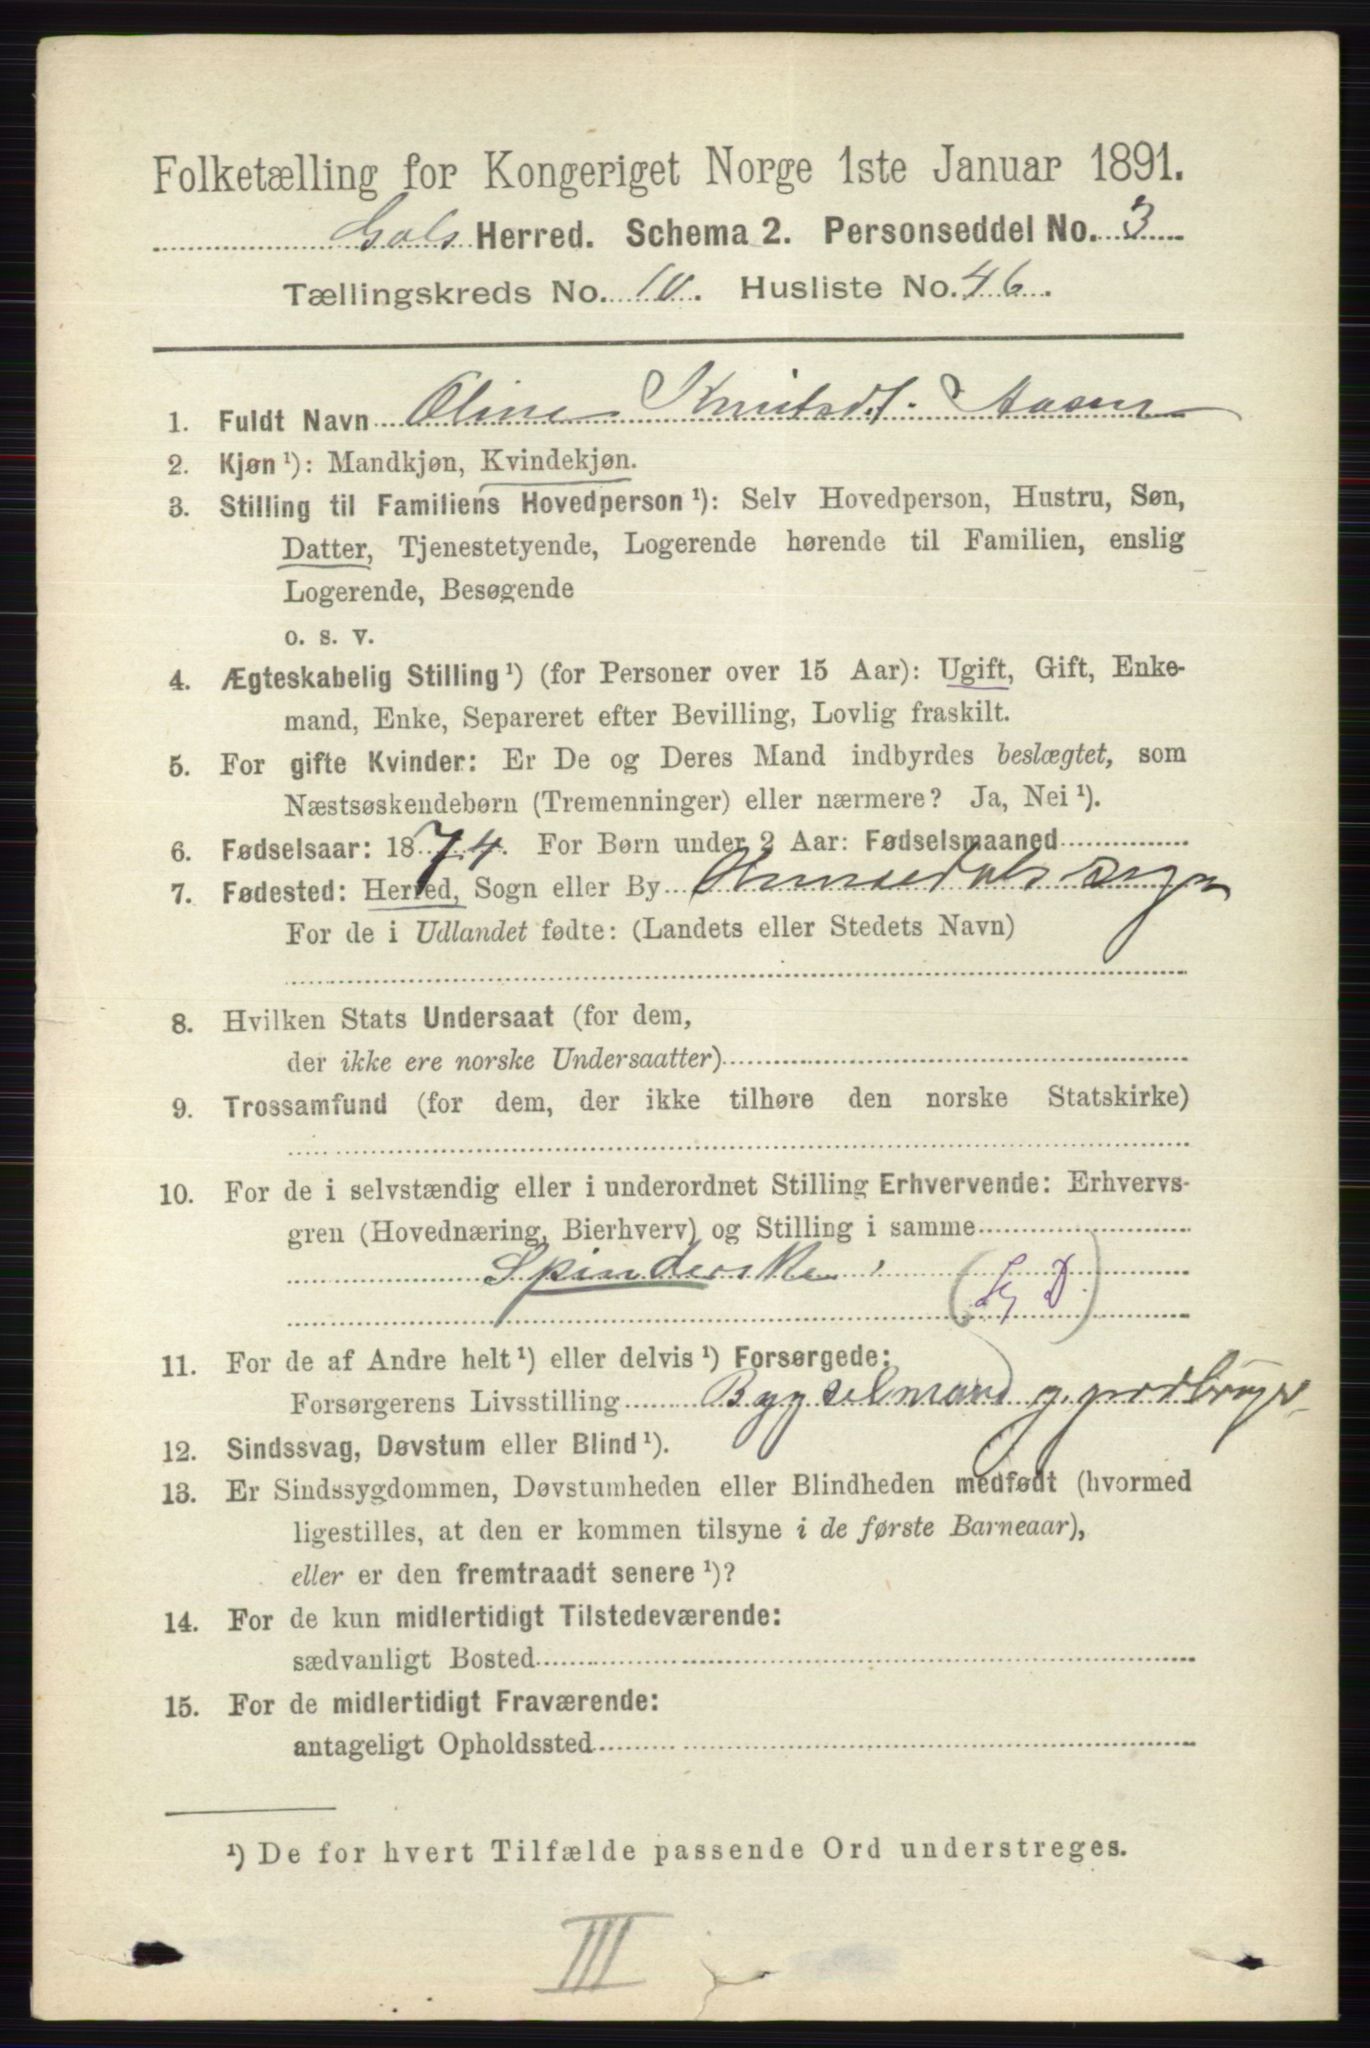 Folketælling for Kongeriget Norge 1ste Januar 1891.
Gols Herred. Schema 2. Personseddel No. 3
Tællingskreds No. 10. Husliste No. 46.
1. Fuldt Navn Oline Knutsd. Aasen
2. Kjøn ¹): Mandkjøn, Kvindekjøn.
3. Stilling til Familiens Hovedperson ¹): Selv Hovedperson, Hustru, Søn,
Datter, Tjenestetyende, Logerende hørende til Familien, enslig
Logerende, Besøgende
o. s. v.
4. Ægteskabelig Stilling ¹) (for Personer over 15 Aar): Ugift, Gift, Enke-
mand, Enke, Separeret efter Bevilling, Lovlig fraskilt.
5. For gifte Kvinder: Er De og Deres Mand indbyrdes beslægtet, som
Næstsøskendebørn (Tremenninger) eller nærmere? Ja, Nei ¹).
6. Fødselsaar: 1874. For Børn under 2 Aar: Fødselsmaaned
7. Fødested: Herred, Sogn eller By Hemsedals Sogn
For de i Udlandet fødte: (Landets eller Stedets Navn)
8. Hvilken Stats Undersaat (for dem,
der ikke ere norske Undersaatter)
9. Trossamfund (for dem, der ikke tilhøre den norske Statskirke)
10. For de i selvstændig eller i underordnet Stilling Erhvervende: Erhvervs-
gren (Hovednæring, Bierhverv) og Stilling i samme
Spinderske (D)
11. For de af Andre helt ¹) eller delvis ¹) Forsørgede:
Forsørgerens Livsstilling Bygselmand g. jordbruger
12. Sindssvag, Døvstum eller Blind ¹).
13. Er Sindssygdommen, Døvstumheden eller Blindheden medfødt (hvormed
ligestilles, at den er kommen tilsyne i de første Barneaar),
eller er den fremtraadt senere ¹)?
14. For de kun midlertidigt Tilstedeværende:
sædvanligt Bosted
15. For de midlertidigt Fraværende:
antageligt Opholdssted
¹) De for hvert Tilfælde passende Ord understreges.
III